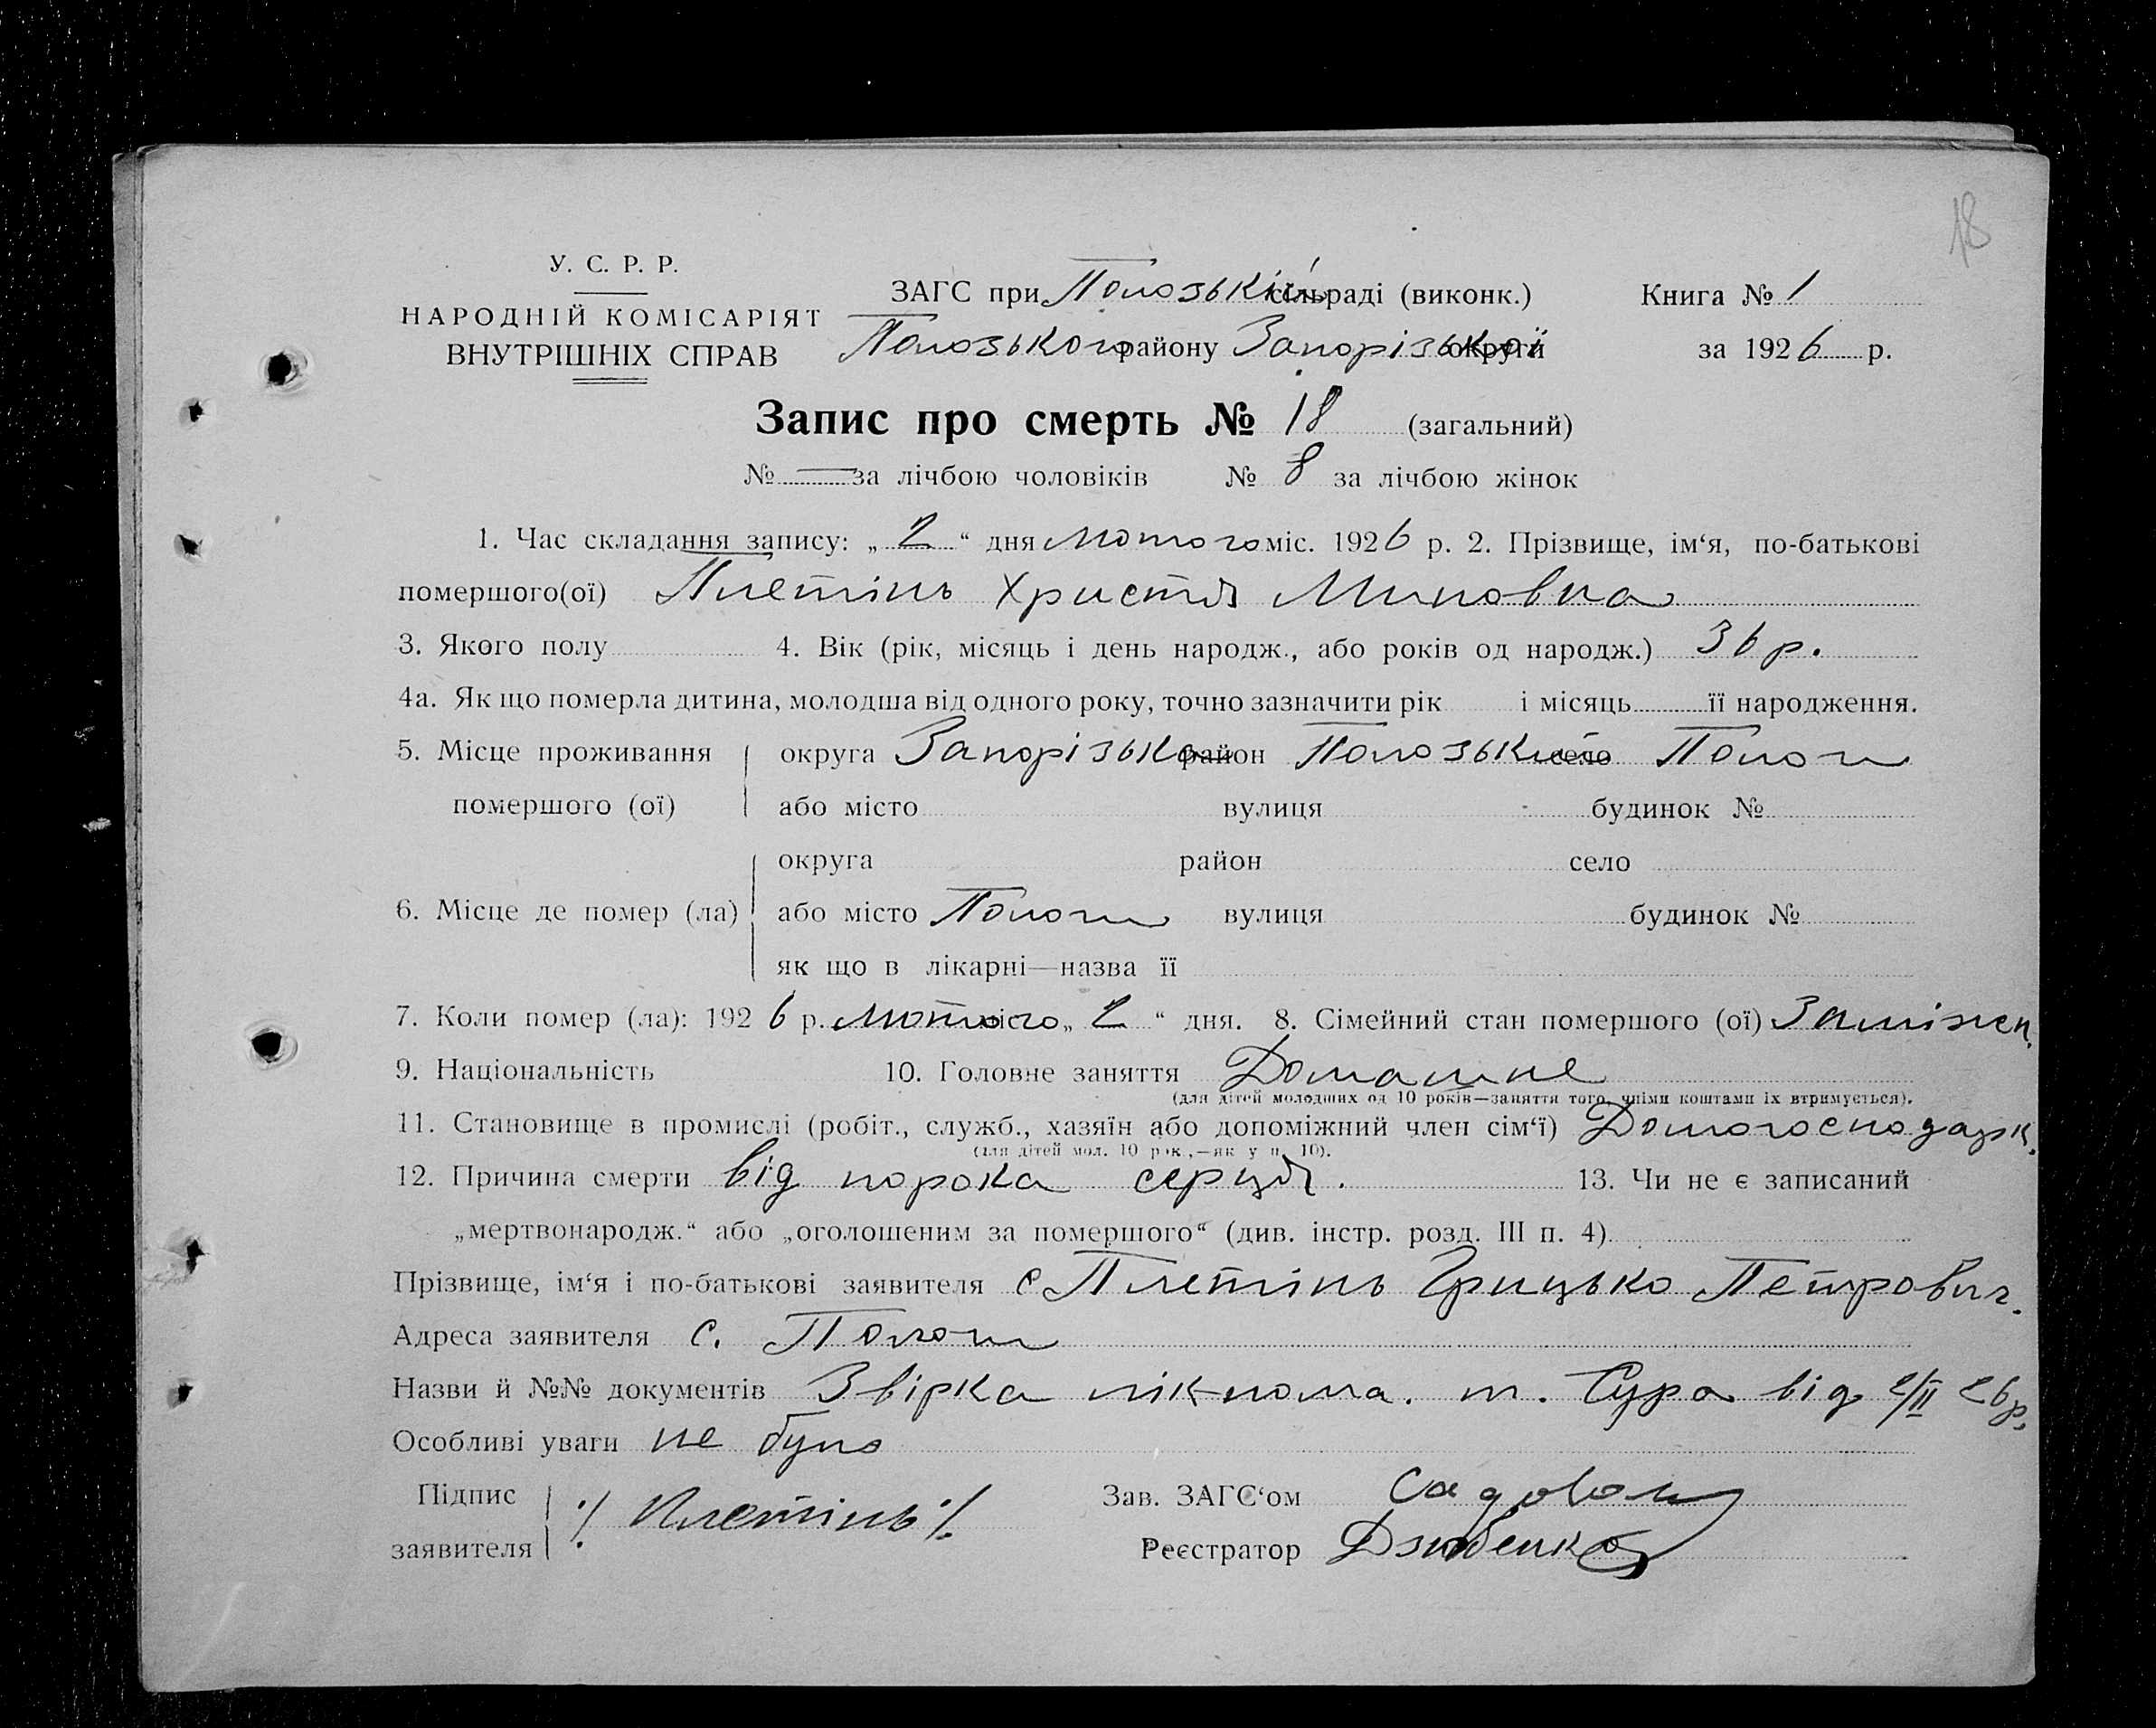 18
У. С. Р. Р.
НАРОДНІЙ КОМІСАРІЯТ
ВНУТРІШНІХ СПРАВ
ЗАГС при Полозькій сільраді (виконк.) Книга № 1
Полозького району Запорізької округи за 1926 р.
Запис про смерть № 18 (загальний)
№ — за лічбою чоловіків № 8 за лічбою жінок
1. Час складання запису: „ 2 “ дня Лютого міс. 1926 р. 2. Прізвище, ім‘я, по-батькові
помершого(ої) Плетінь Христя Миновна
3. Якого полу 4. Вік (рік, місяць і день народж., або років од народж.) 36 р.
4а. Як що померла дитина, молодша від одного року, точно зазначити рік і місяць її народження.
5. Місце проживання округа Запорізька район Полозький село Пологи
помершого (ої) або місто вулиця будинок №
округа район село
6. Місце де помер (ла) або місто Пологи вулиця будинок №
як що в лікарні—назва її
7. Коли помер (ла): 1926 р. Лютого „ 2 “ дня. 8. Сімейний стан помершого (ої) Заміжн.
9. Національність 10. Головне заняття Домашнє
(для дітей молодших од 10 років—заняття того, чиїми коштами їх втримується).
11. Становище в промислі (робіт., служб., хазяїн або допоміжний член сім‘ї) Домогосподарк.
(для дітей мол. 10 рок.,—як у п. 10).
12. Причина смерти від порока серця. 13. Чи не є записаний
„мертвонародж.“ або „оголошеним за помершого“ (див. інстр. розд. III п. 4)
Прізвище, ім‘я і по-батькові заявителя с Плетінь Грицько Петрович.
Адреса заявителя с. Пологи
Назви й №№ документів Звірка лікпома. т. Сура від 2/II 26р.
Особливі уваги не було
Підпис Зав. ЗАГС‘ом Садовом
заявителя ./ Плетінь /. Реєстратор